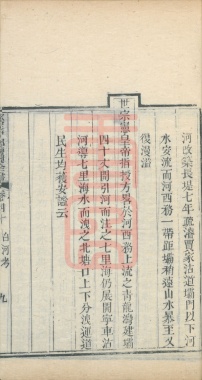 河改築長堤七年疏濬賈家沽道壩門以下河
水安流而河西務一帶距壩稍遠山水暴至又
復漫溢
世宗憲皇帝指授方畧於河西務上流之青龍灣建壩
四十丈開引河而注之七里海仍展開寧車沽
河導七里海水而洩之北塘口上下分洩運道
民生均獲安謐云
白河考
九